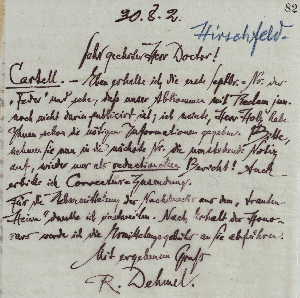 82
30. 8. 2.
Hirschfeld.
Sehr geehrter Herr Doctor!
Cartell. – Eben erhalte ich die erste Septbr.-Nr. der
„Feder" und sehe, daß unser Abkommen mit
noch nicht darin publicirt ist; ich meinte, Herr Holz habe
Ihnen schon die nötigen Informationen gegeben. Bitte,
nehmen Sie nun in die nächste Nr. die umstehende Notiz
auf, wieder nur als redactionellen Bericht! Auch
erbitte ich Correctur-Zusendung.
Für die Uebermittelung der Nachdrucke aus dem
danke ich Nach Erhalt des Hono-
rars werde ich die Ermittelungsgebühr an Sie abführen.
Mit ergebenem Gruß
R. Dehmel.